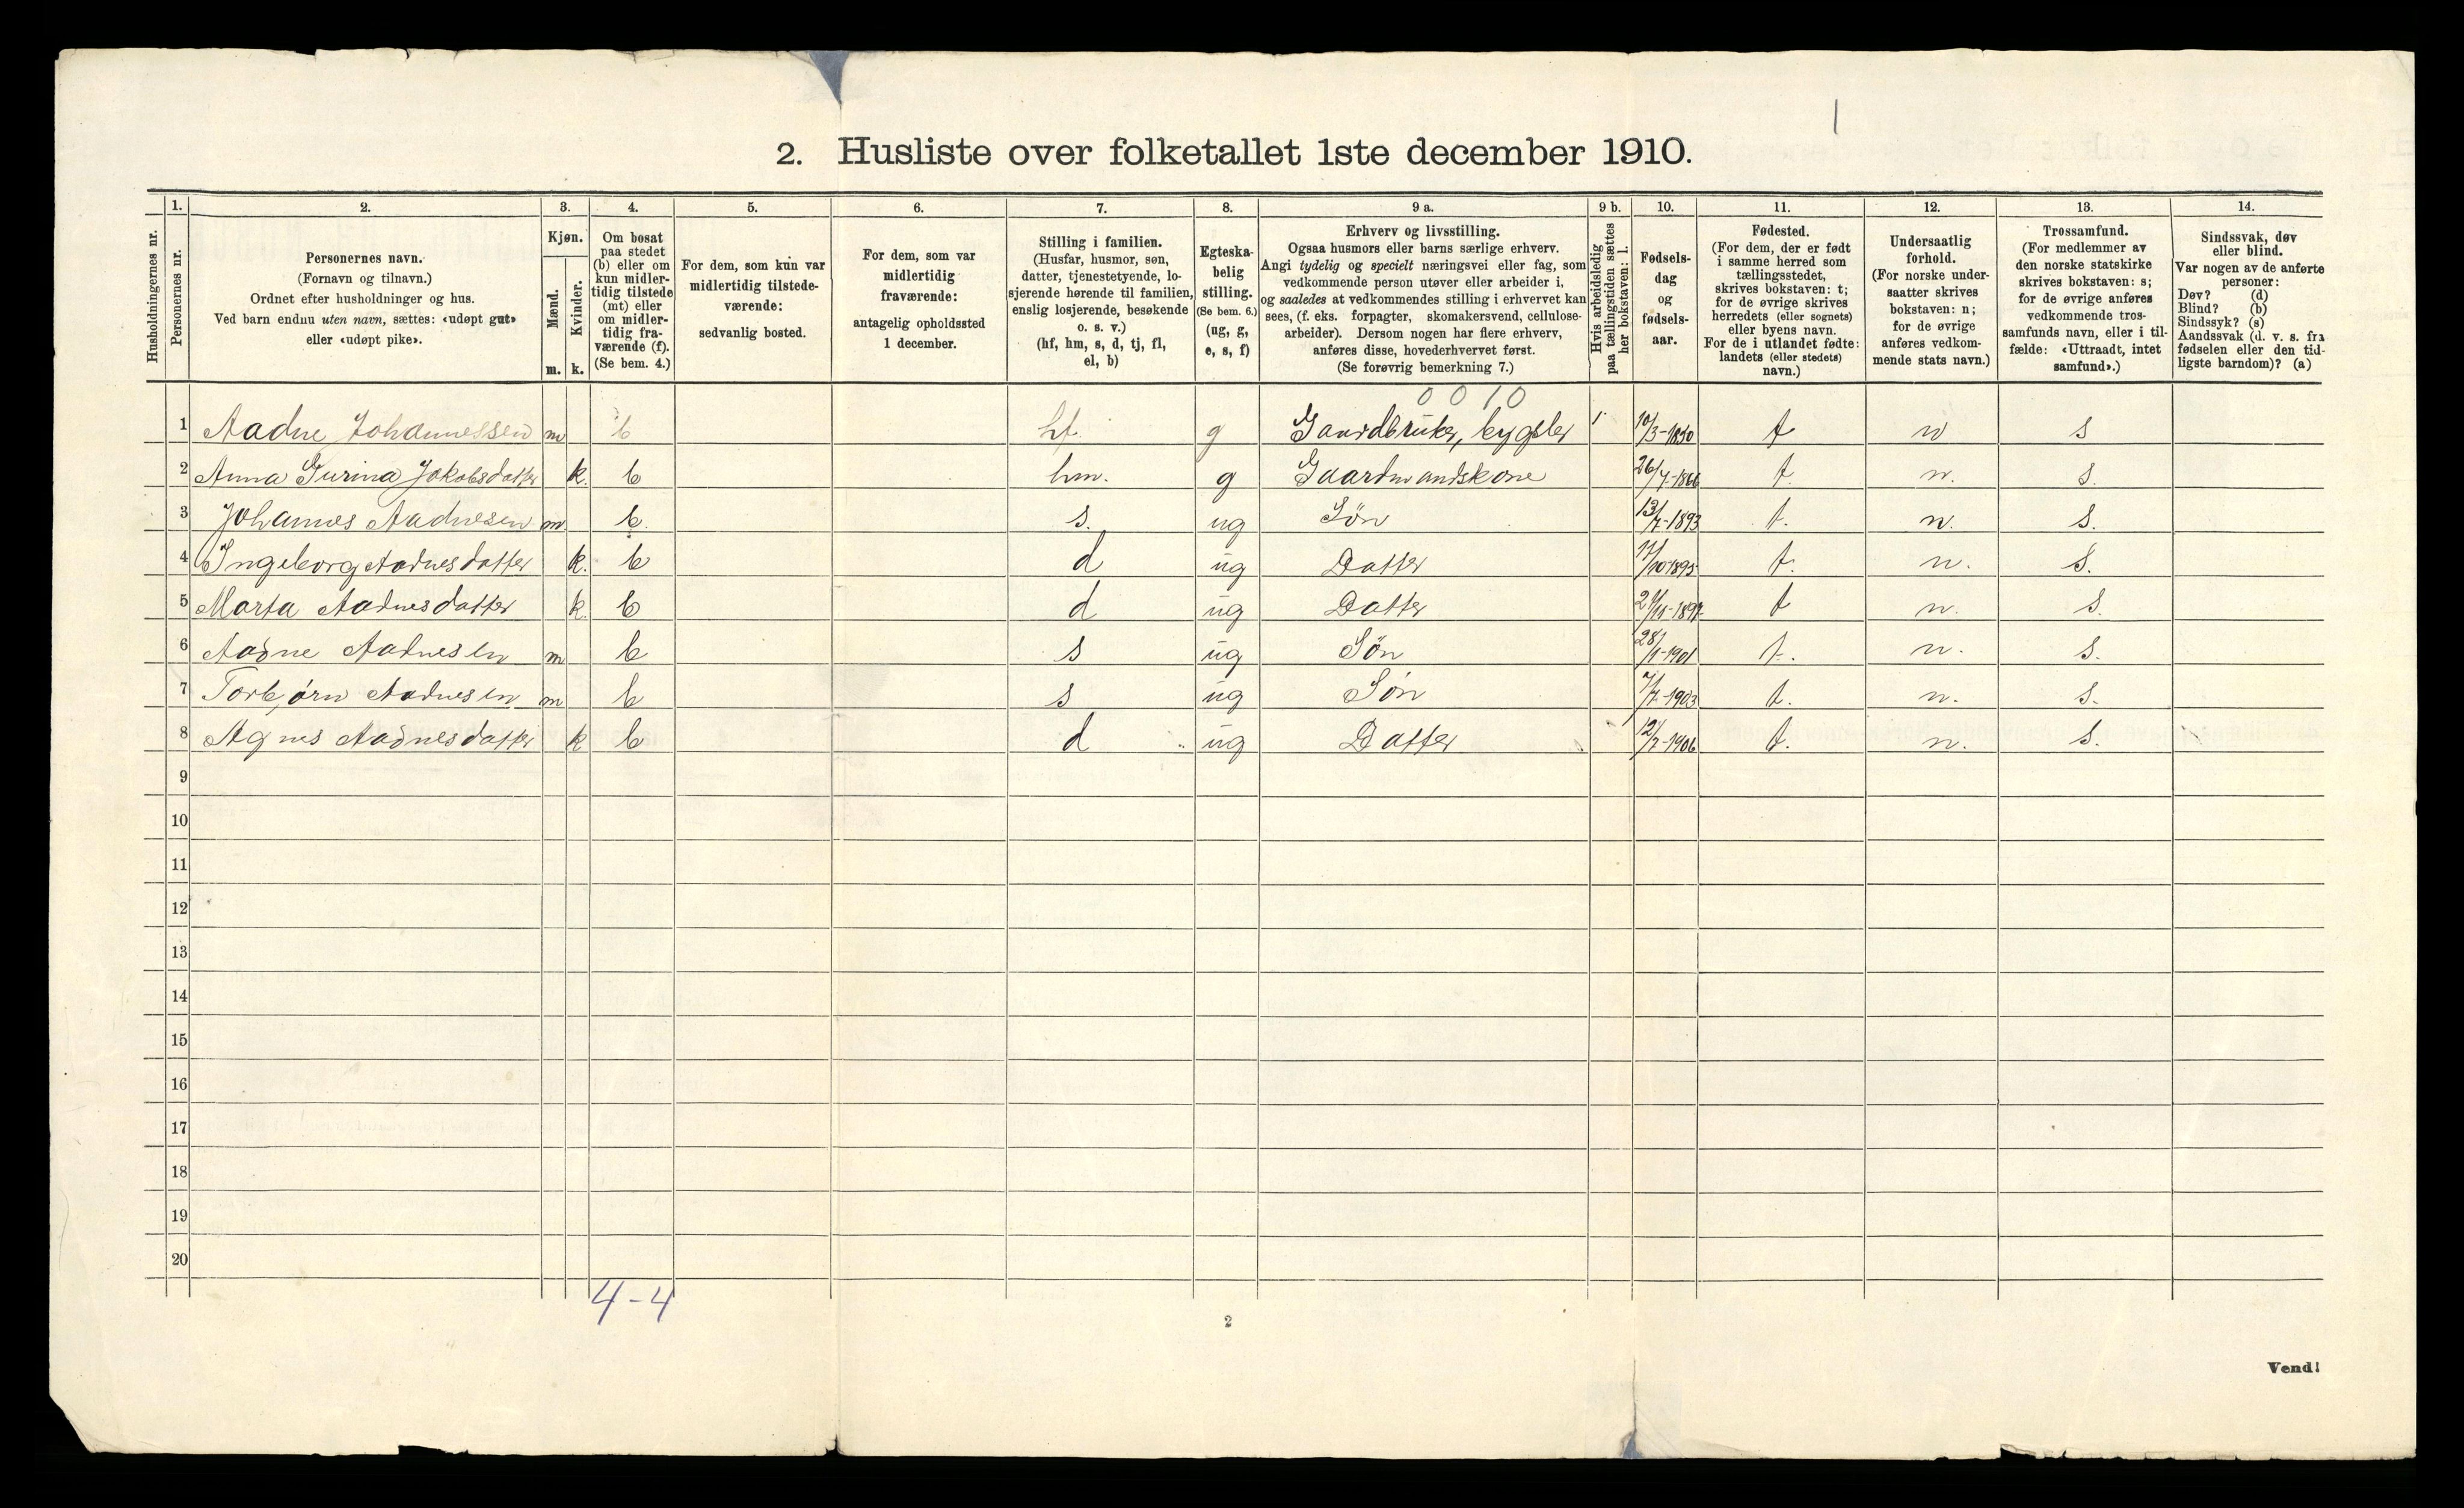 2. Husliste over folketallet 1ste december 1910.
Husholdningernes nr.
1. Personernes nr.
2. Personernes navn.
(Fornavn og tilnavn.)
Ordnet efter husholdninger og hus.
Ved barn endnu uten navn, sættes: «udøpt gut»
eller «udøpt pike».
3. Kjøn.
Mænd. m.
Kvinder. k.
4. Om bosat
paa stedet
(b) eller om
kun midler-
tidig tilstede
(mt) eller
om midler-
tidig fra-
værende (f).
(Se bem. 4.)
5. For dem, som kun var
midlertidig tilstede-
værende:
sedvanlig bosted.
6. For dem, som var
midlertidig
fraværende:
antagelig opholdssted
1 december.
7. Stilling i familien.
(Husfar, husmor, søn,
datter, tjenestetyende, lo-
sjerende hørende til familien,
enslig losjerende, besøkende
o. s. v.)
(hf, hm, s, d, tj, fl,
el, b)
8. Egteska-
belig
stilling.
(Se bem. 6.)
(ug, g,
e, s, f)
9 a. Erhverv og livsstilling.
Ogsaa husmors eller barns særlige erhverv.
Angi tydelig og specielt næringsvei eller fag, som
vedkommende person utøver eller arbeider i,
og saaledes at vedkommendes stilling i erhvervet kan
sees, (f. eks. forpagter, skomakersvend, cellulose-
arbeider). Dersom nogen har flere erhverv,
anføres disse, hovederhvervet først.
(Se forøvrig bemerkning 7.)
9 b. Hvis arbeidsledig
paa tællingstiden sættes
her bokstaven: l.
10. Fødsels-
dag
og
fødsels-
aar.
11. Fødested.
(For dem, der er født
i samme herred som
tællingsstedet,
skrives bokstaven: t;
for de øvrige skrives
herredets (eller sognets)
eller byens navn.
For de i utlandet fødte:
landets (eller stedets)
navn.)
12. Undersaatlig
forhold.
(For norske under-
saatter skrives
bokstaven: n;
for de øvrige
anføres vedkom-
mende stats navn.)
13. Trossamfund.
(For medlemmer av
den norske statskirke
skrives bokstaven: s;
for de øvrige anføres
vedkommende tros-
samfunds navn, eller i til-
fælde: «Uttraadt, intet
samfund».)
14. Sindssvak, døv
eller blind.
Var nogen av de anførte
personer:
Døv? (d)
Blind? (b)
Sindssyk? (s)
Aandssvak (d. v. s. fra
fødselen eller den tid-
ligste barndom)? (a)
0 0 1 0
1 Aadne Johannessen m b hf. g Gaardbruker, bygsler 10/3-1850 t n s
2 Anna Gurina Jakobsdatter k. b hm. g Gaardmandskone 26/7-1866 t. n. s.
3 Johannes Aadnesen m. b. s. ug Søn 13/7-1893 t. n. s.
4 Ingeborg Aadnesdatter k. b d ug Datter 17/10-1895 t. n. s.
5 Marta Aadnesdatter k. b d ug Datter 27/11-1897 t n. s.
6 Aadne Aadnesen m b s ug Søn 28/1-1901 t. n. s.
7 Torbjørn Aadnesen m b s ug Søn 7/7-1903 t. n. s.
8 Agnes Aadnesdatter k b d ug Datter 12/7-1906 t. n. s.
9
10
11
12
13
14
15
16
17
18
19
20
4-4
2
Vend!